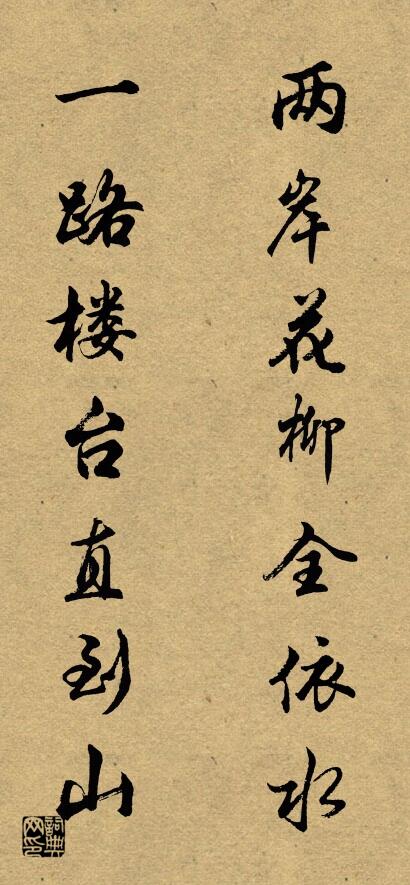 两岸花柳全依水
一路楼台直到山
词典网印